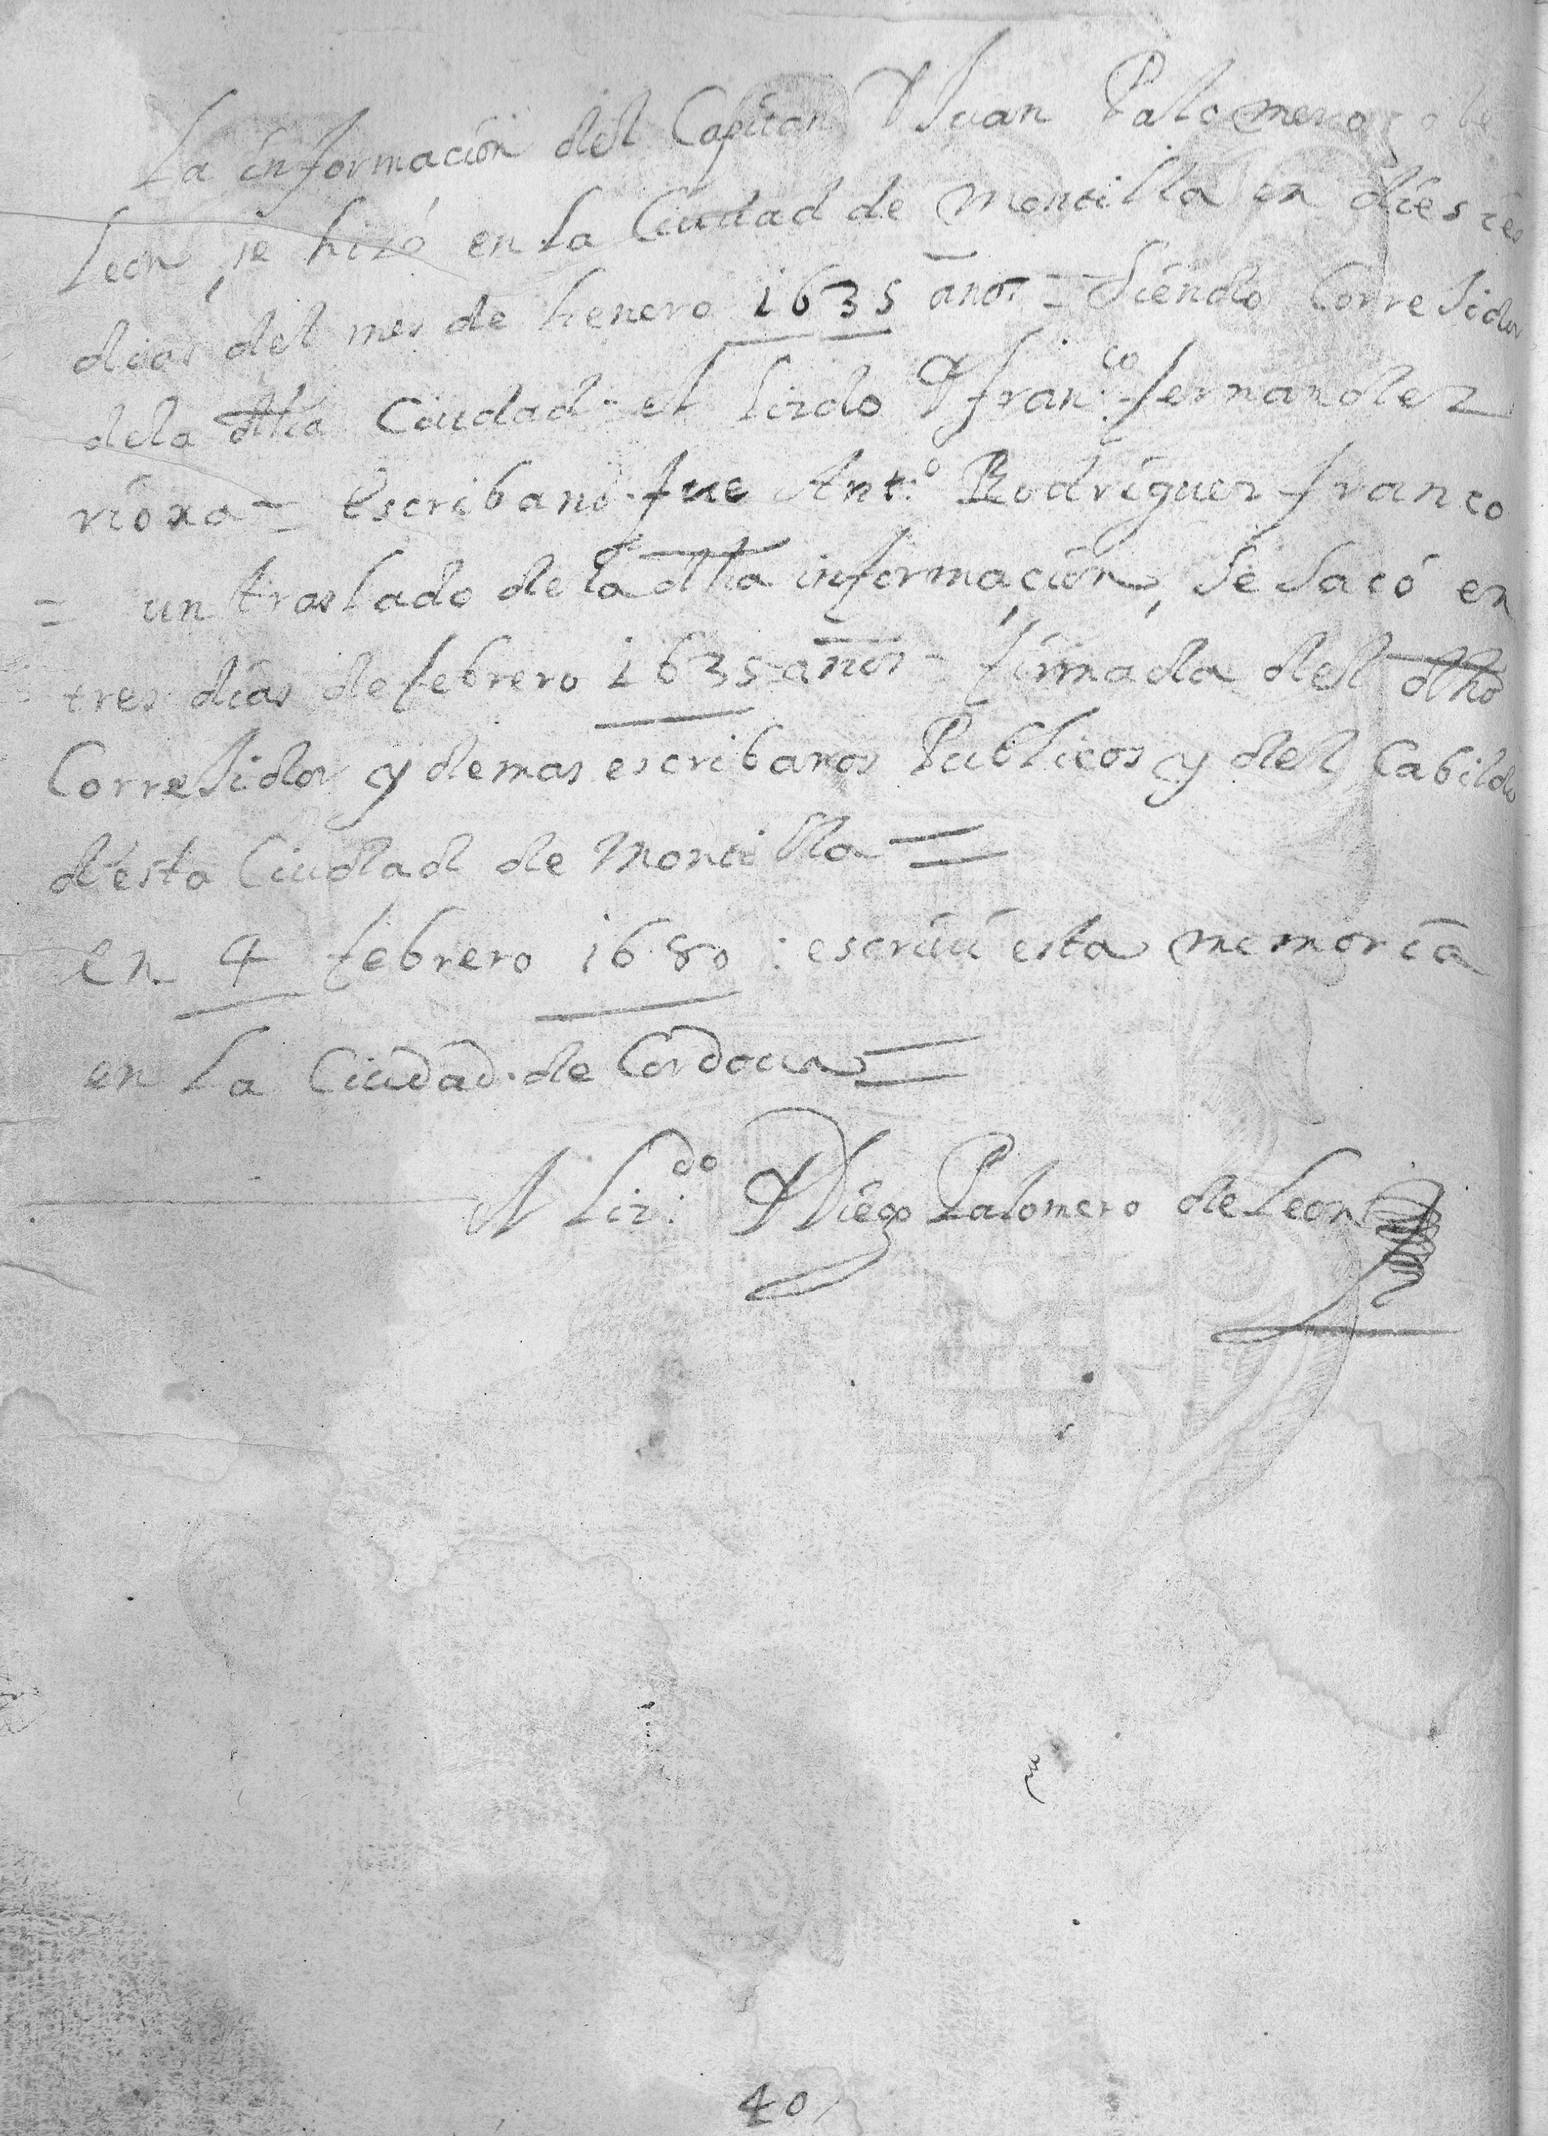 La informacion del Capitan D Juan Palomero de
Leon, se hizó en La Ciudad de Montilla en dies i es
dias del mes de henero 1635 años = Siendo Corregidor
dela dha Ciudad el Lizdo D fran.co fernandez
rioxa = escribano fue Ant.o Rodriguez franco
= un traslado de la dha informacion, Se Sacó en
tres dias de febrero 1635 años = firmada del dho
Corregidor y demas escribanos Publicos y del Cabildo
desta Ciudad de Montilla =
en 4 febrero 1680 : escriui esta memoria
en La Ciudad de Cordoua =
Liz.do D Diego Palomero de Leon
40